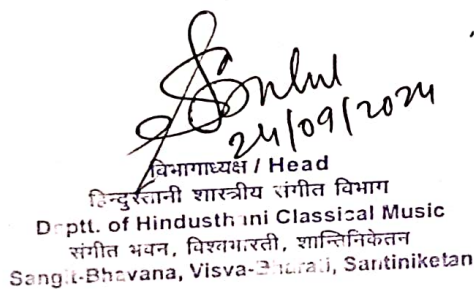 24/09/2024
विभागाध्यक्ष / Head
हिन्दुस्तानी शास्त्रीय संगीत विभाग
Deptt. of Hindusthani Classical Music
संगीत भवन, विश्वभारती, शान्तिनिकेतन
Sangit-Bhavana, Visva-Bharati, Santiniketan